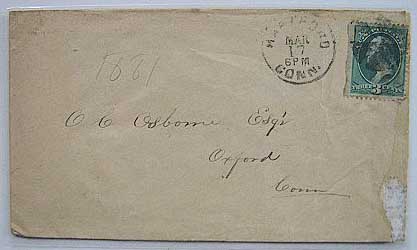 HARTFORD
MAR
17
6PM
CONN.
THREE 3 CENTS
1881
O C Osborne Esqr
Oxford
Conn